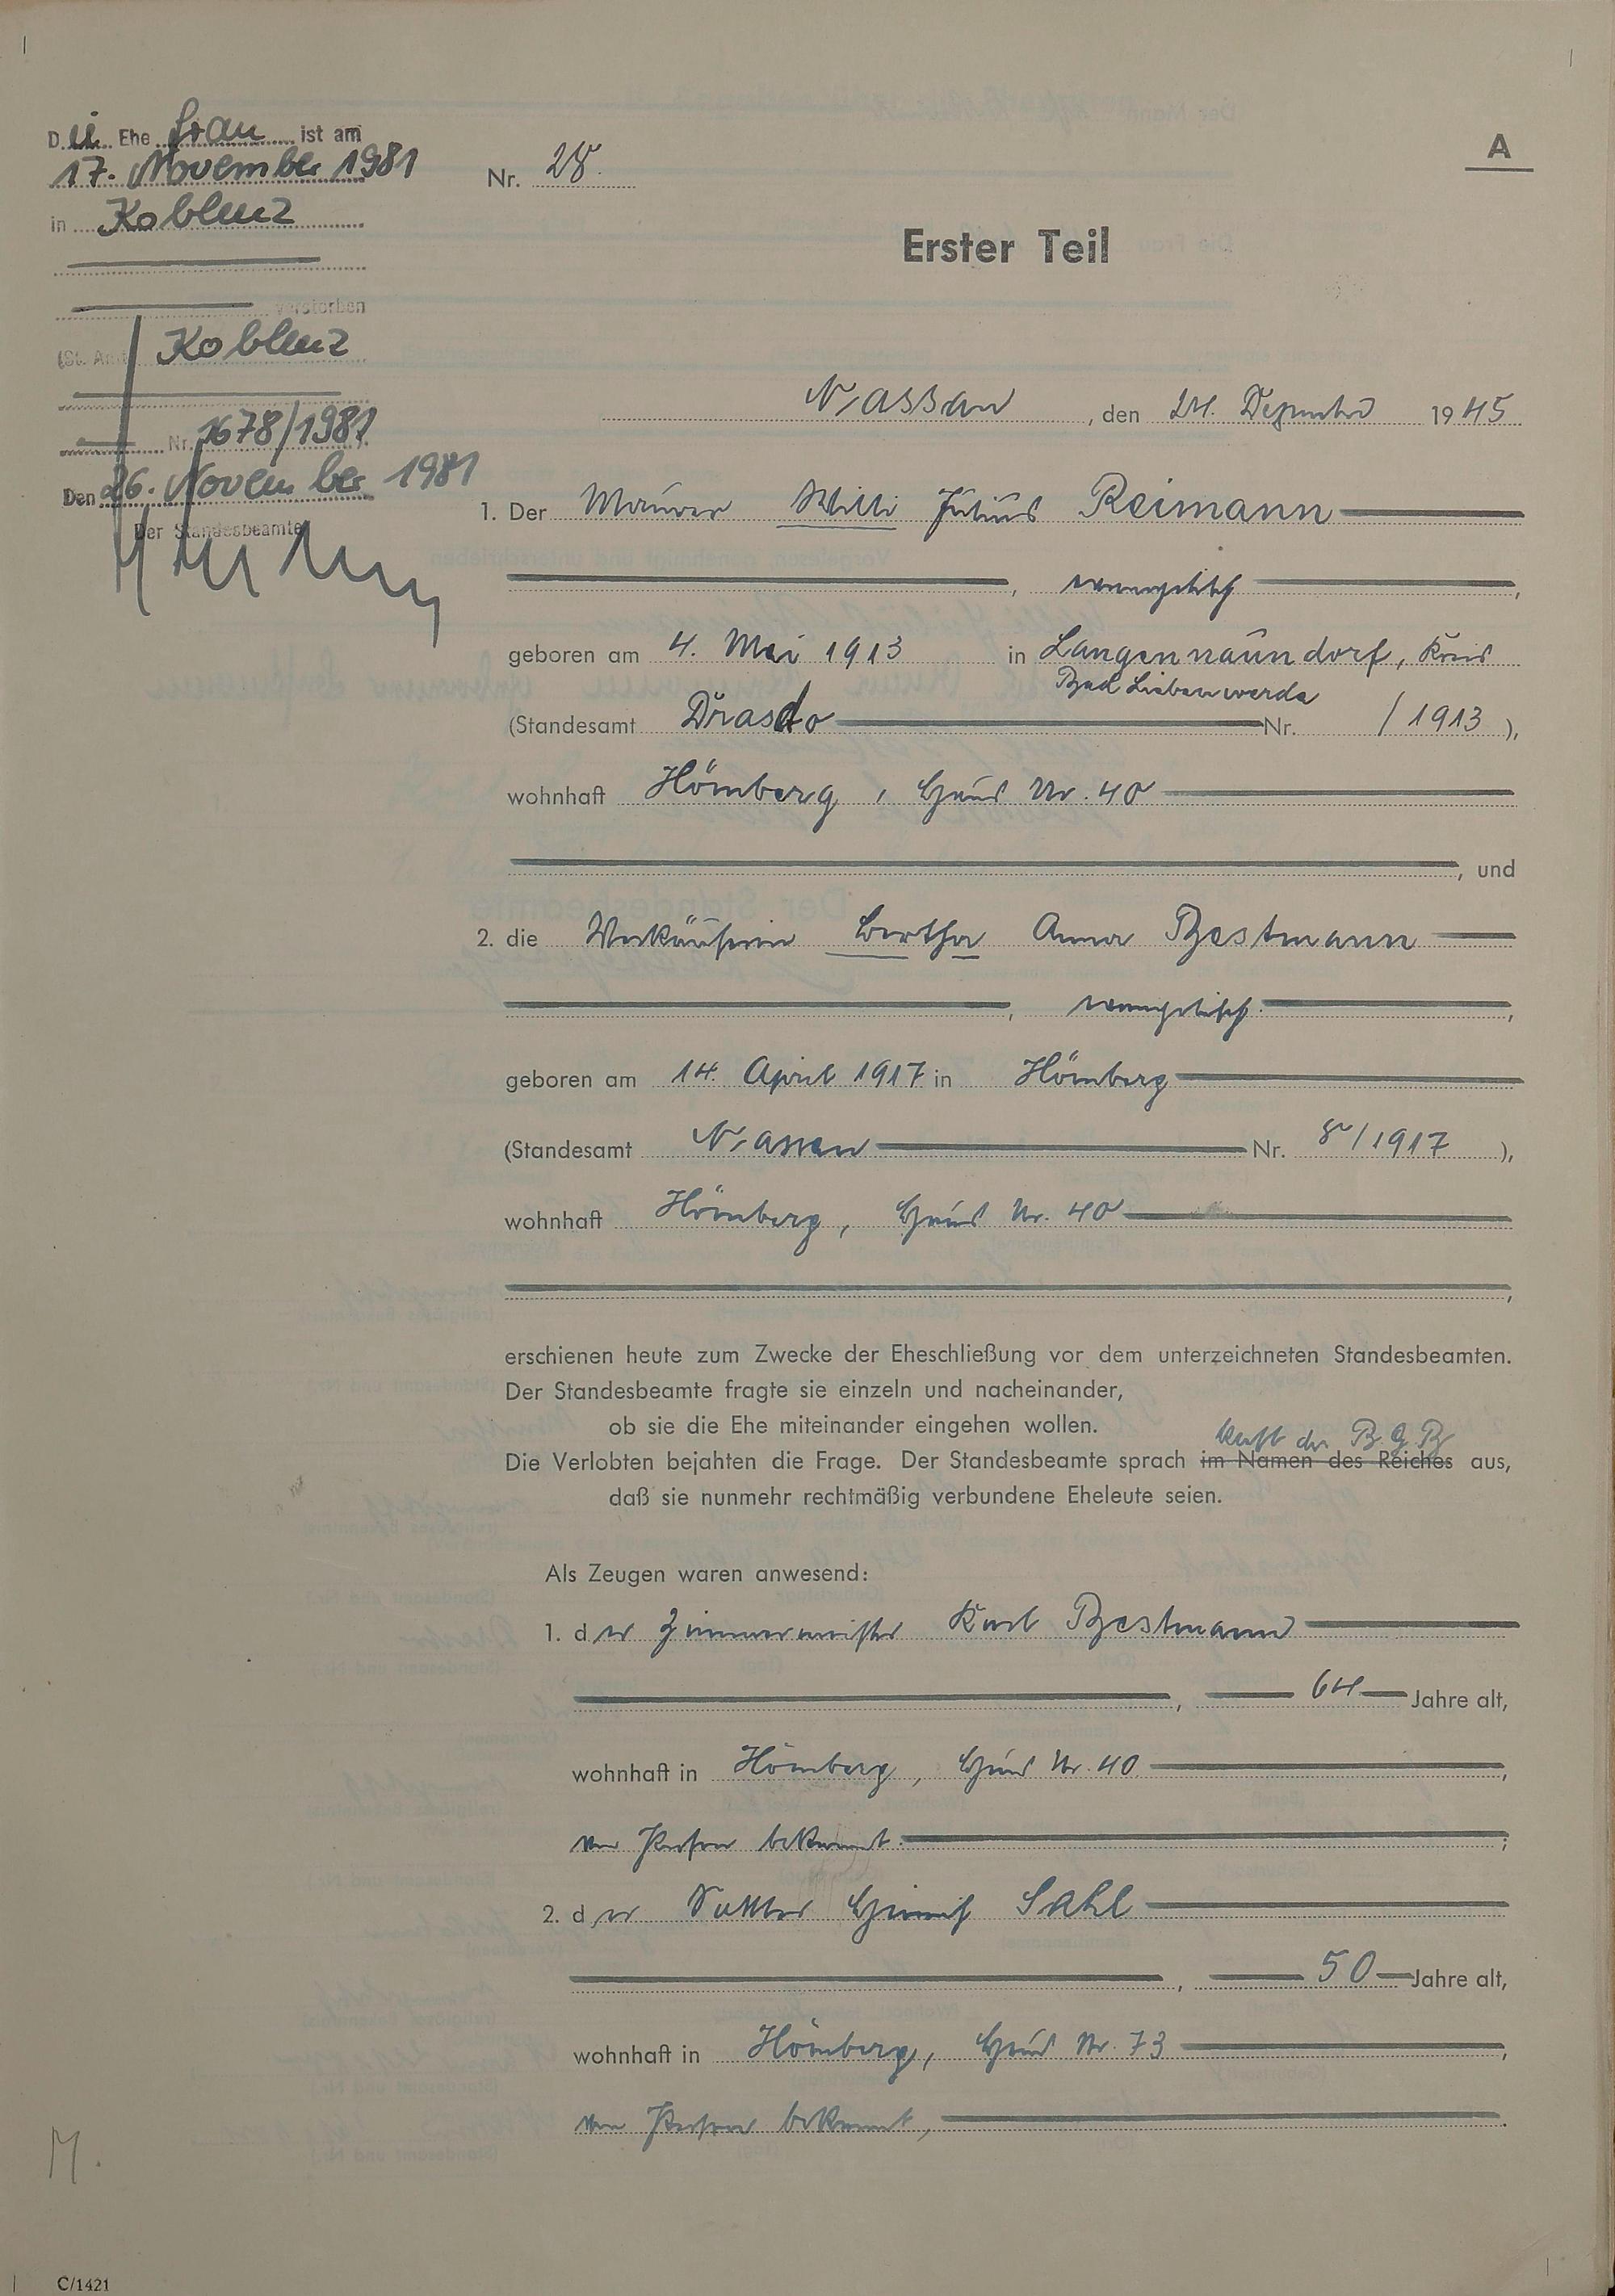 A
Die Ehefrau ist am
17. November 1981
in Koblenz
verstorben
(St. Amt Koblenz
Nr. 1678/1981)
Den 26. November 1981
Der Standesbeamte
Nr. 28.
Erster Teil
Nassau, den 24. Dezember 1945
1. Der Maurer Willi Julius Reimann
, evangelisch,
geboren am 4. Mai 1913 in Langennaundorf, Kreis
Bad Liebenwerda
(Standesamt Drasdo Nr. / 1913),
wohnhaft Hömberg, Haus Nr. 40
, und
2. die Verkäuferin Bertha Anna Bestmann
, evangelisch,
geboren am 14. April 1917 in Hömberg
(Standesamt Nassau Nr. 8/1917),
wohnhaft Hömberg, Haus Nr. 40
,
erschienen heute zum Zwecke der Eheschließung vor dem unterzeichneten Standesbeamten.
Der Standesbeamte fragte sie einzeln und nacheinander,
ob sie die Ehe miteinander eingehen wollen.
kraft des B.G.B
Die Verlobten bejahten die Frage. Der Standesbeamte sprach im Namen des Reiches aus,
daß sie nunmehr rechtmäßig verbundene Eheleute seien.
Als Zeugen waren anwesend:
1. der Zimmermeister Karl Bestmann
, 64 Jahre alt,
wohnhaft in Hömberg, Haus Nr. 40,
von Person bekannt.;
2. der Heinrich Sahl
, 50 Jahre alt,
wohnhaft in Hömberg, Haus Nr. 73,
von Person bekannt,.
M.
C/1421